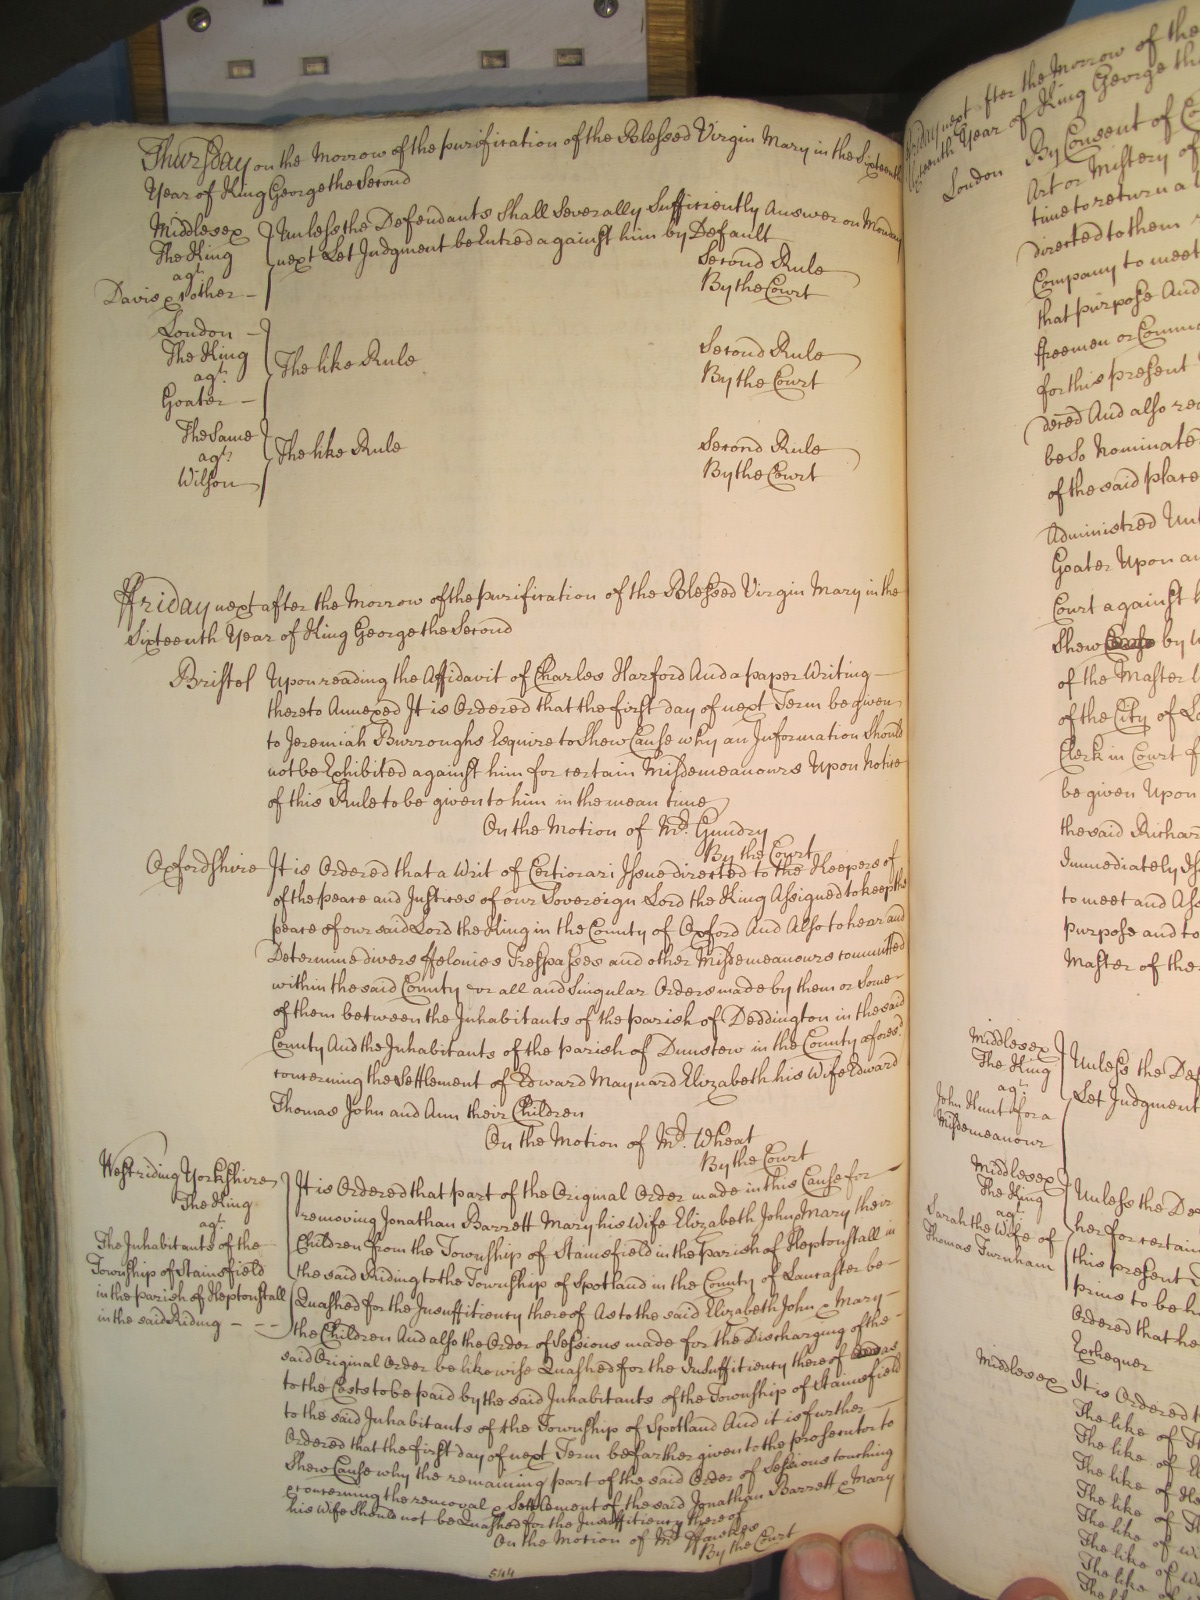 Thursday on the Morrow of the purification of the Blessed Virgin Mary in the Sixteenth
Year of King George the Second
Middlesex
The King
agt.
Davis & other
Unless the Defendants Shall Severally Sufficiently Answer on Monday
next Let Judgment be Entred against him by Default
Second Rule
By the Court
London
The King
agt.
Goater
The like Rule
Second Rule
By the Court
The Same
agt.
Wilson
The like Rule
Second Rule
By the Court
ffriday next after the Morrow of the purification of the Blessed Virgin Mary in the
Sixteenth Year of King George the Second
Bristol Upon reading the Affidavit of Charles Harford And a paper Writing
thereto Annexed It is Ordered that the first day of next Term be given
to Jeremiah Burroughs Esquire to Shew Cause why an Information Should
not be Exhibited against him for certain Misdemeanours Upon Notice
of this Rule to be given to him in the mean time
On the Motion of Mr. Gundry
By the Court
Oxfordshire It is Ordered that a Writ of Certiorari Issue directed to the Keepers of
of the peace and Justices of our Sovereign Lord the King Assigned to keep the
peace of our said Lord the King in the County of Oxford And Also to hear and
Determine divers ffelonies Trespasses and other Misdemeanours committed
within the said County for all and Singular Orders made by them or Some
of them between the Inhabitants of the parish of Deddington in the said
County And the Inhabitants of the parish of Dunstew in the County afores.d
concerning the Settlement of Edward Maynard Elizabeth his Wife Edward
Thomas John and Ann their Children
On the Motion of Mr. Wheat
By the Court
West riding Yorkshire
The King
agt.
The Inhabitants of the
Township of Stainsfield
in the parish of Heptonstall
in the said Riding
It is Ordered that part of the Original Order made in this Cause for
removing Jonathan Barrett Mary his Wife Elizabeth John & Mary their
Children from the Township of Stainsfield in the parish of Heptonstall in
the said Riding to the Township of Spotland in the County of Lancaster be
Quashed for the Insufficiency thereof As to the said Elizabeth John & Mary
the Children And also the Order of Sessions made for the Discharging of the
said Original Order be likewise Quashed for the Insufficiency thereof as
to the Costs to be paid by the said Inhabitants of the Township of Stainsfield
to the said Inhabitants of the Township of Spotland And it is further
Ordered that the first day of next Term be farther given to the prosecutor to
Shew Cause why the remaining part of the said Order of Sessions touching
& concerning the removal & Settlement of the said Jonathan Barrett & Mary
his Wife Should not be Quashed for the Insufficiency thereof
On the Motion of Mr. Hawkes
By the Court
544
next after the Morrow of the
Year of King George the
London
By Consent of
Art or Mistery of
time to return a
directed to them
Company to meet
that purpose And
ffreemen or
for this present
And also
be So Nominate
of the said place
Administred
Goater Upon
Court against
Shew by
of the Master
of the City of
Clerk in Court
be given Upon
the said Richar
Immediately
to meet and
purpose and to
Master of the
Middlesex
The King
agt.
John Hunt for a
Misdemeanour
Unless the De
Let Judgment
Middlesex
The King
agt.
Sarah the Wife of
Thomas Turnham
Unless the De
her for certain
this present
prius to be
Ordered that he
Exchequer
Middlesex
It is Ordered
The like of
The like of
The like of
The like of
The like of
The like of
The like of
The like